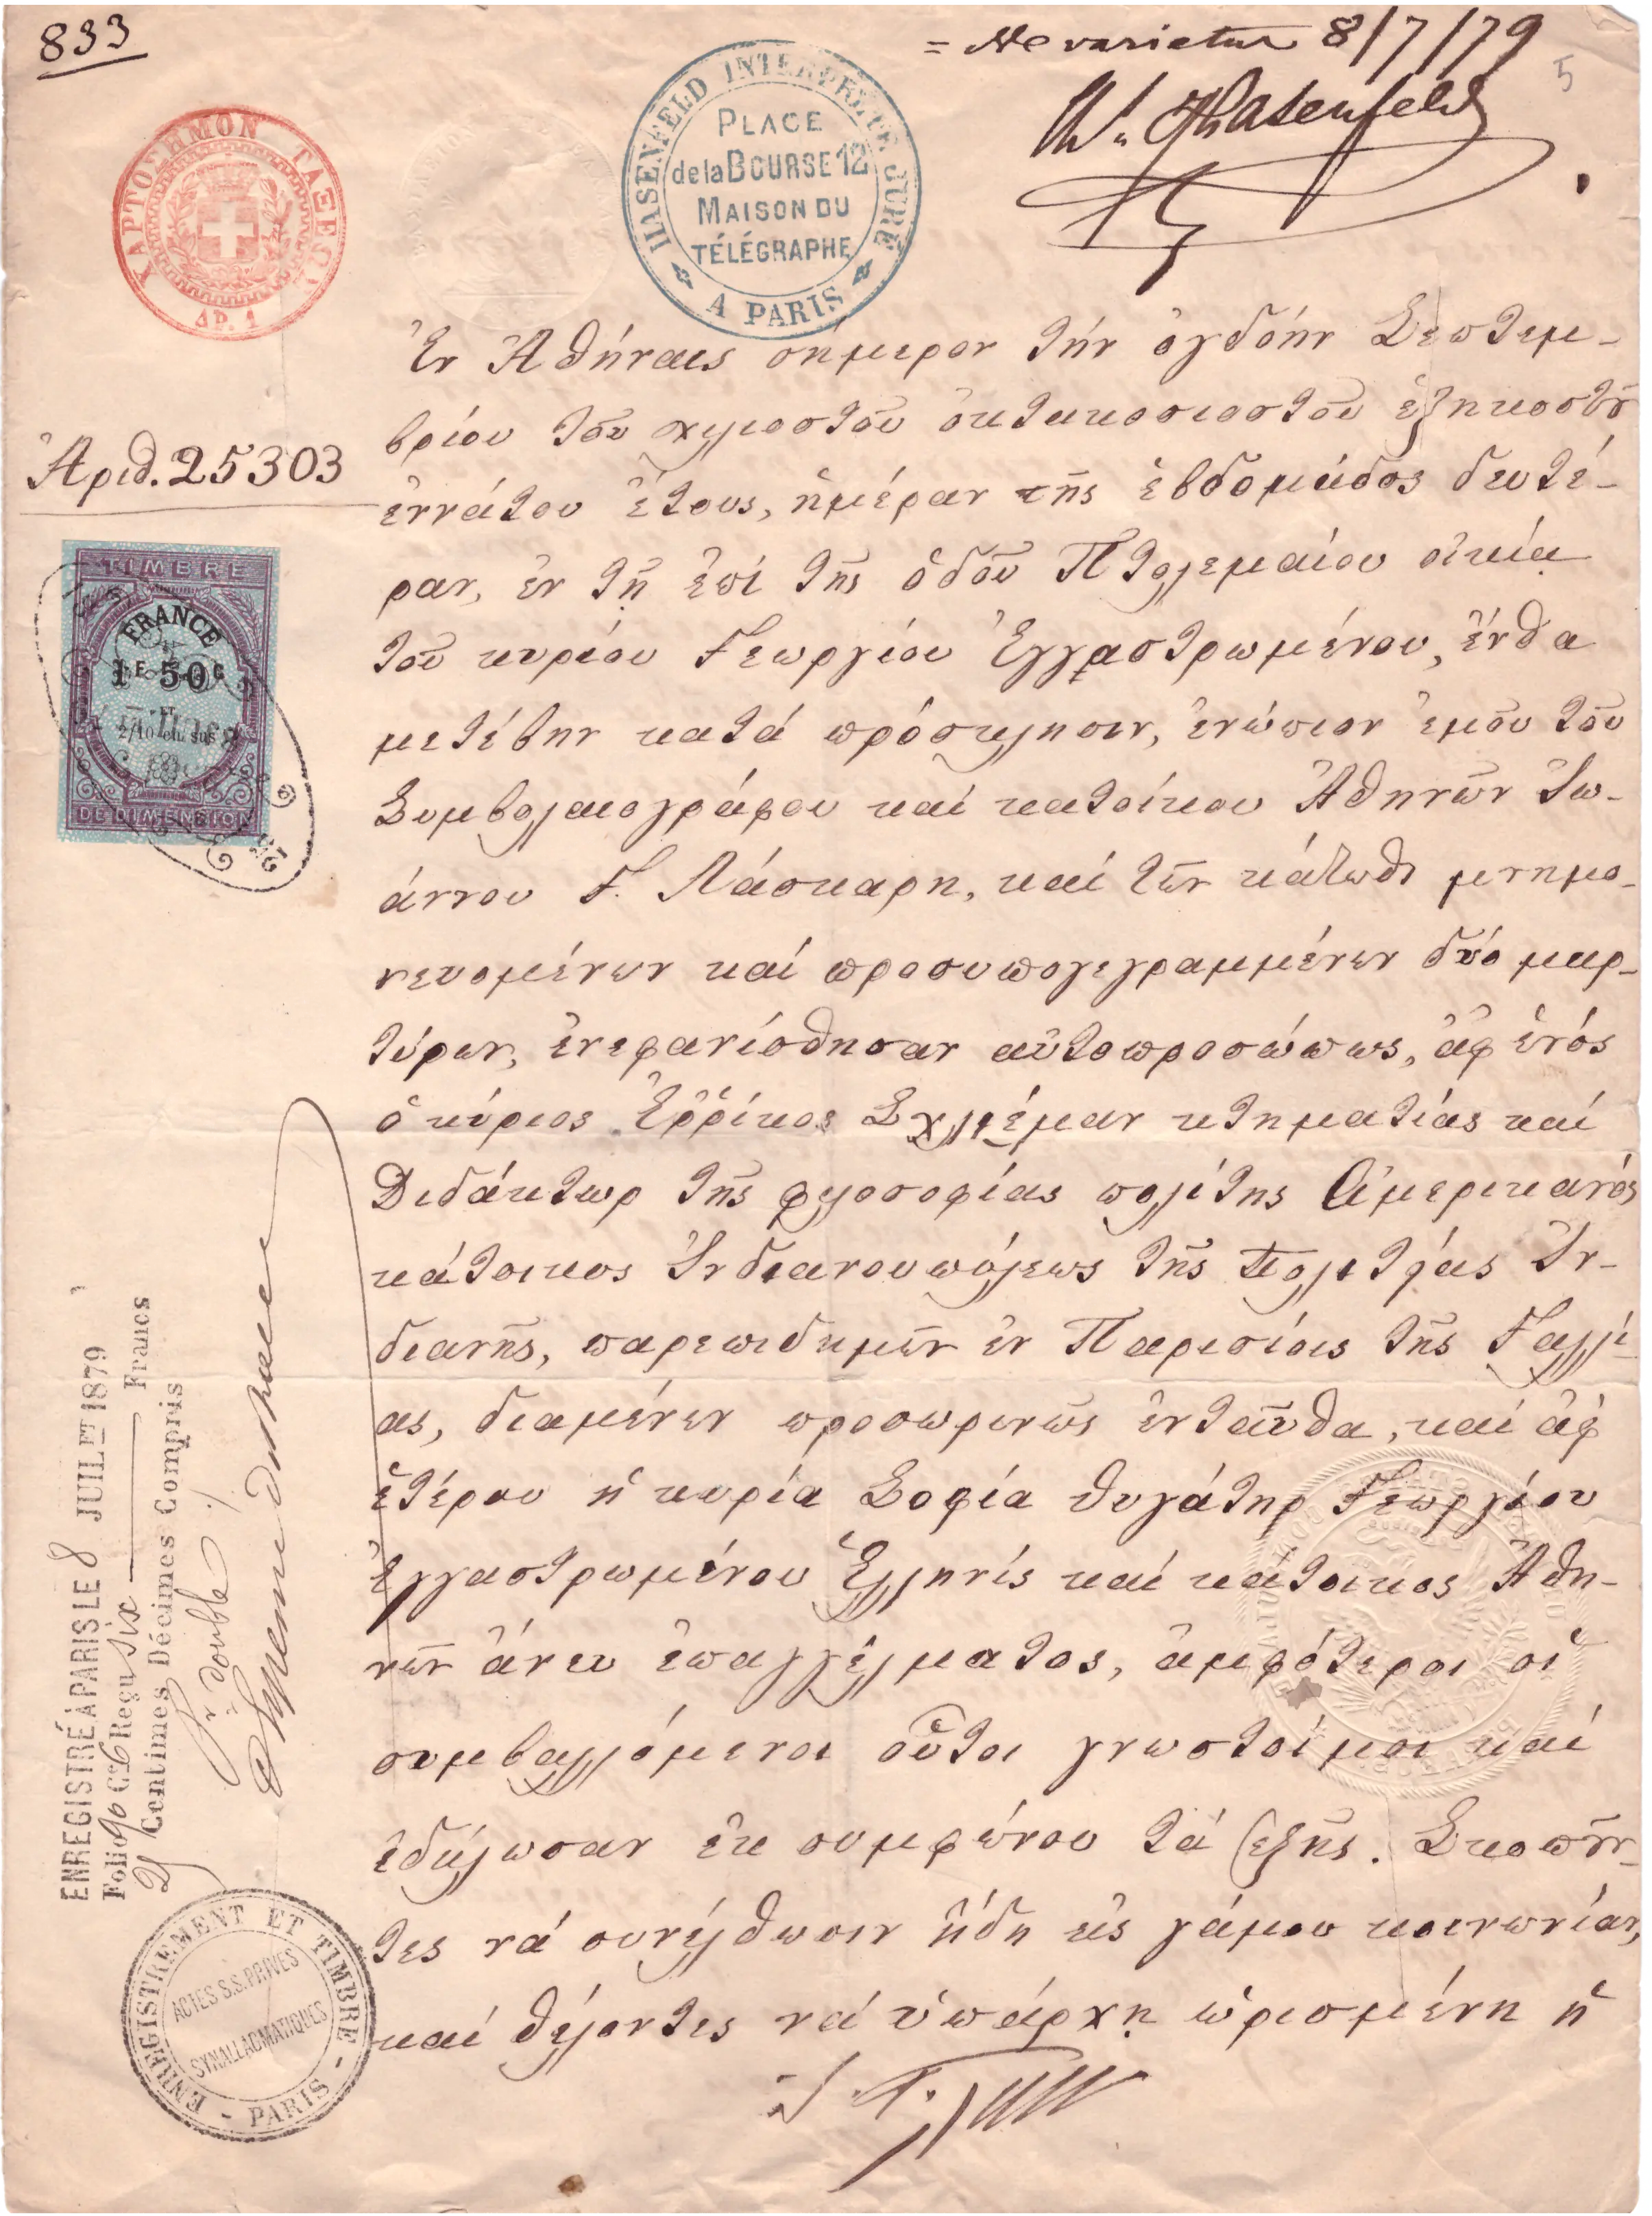 833
= Ne varietur 8/7/79
5
W. Hasenfeld
ΧΑΡΤΟΣΗΜΟΝ ΤΑΞΕΩΣ
ΔΡ. 1
HASENFELD INTERPRÈTE JURÉ
PLACE
de la BOURSE 12
MAISON DU
TÉLÉGRAPHE
A PARIS
Ἀριθ. 25303
TIMBRE
FRANCE
1 F. 50 C
ET
2/10 en sus
DE DIMENSION
Ἐν Ἀθήναις σήμερον τήν ὀγδόην Σεπτεμ-
βρίου τοῦ χιλιοστοῦ ὀκτακοσιοστοῦ ἑξηκοστοῦ
ἐννάτου ἔτους, ἡμέραν τῆς ἑβδομάδος δευτέ-
ραν, ἐν τῇ ἐπί τῆς ὁδοῦ Πτολεμαίου οἰκίᾳ
τοῦ κυρίου Γεωργίου Ἐγγαστρωμένου, ἔνθα
μετέβην κατά πρόσκλησιν, ἐνώπιον ἐμοῦ τοῦ
Συμβολαιογράφου καί κατοίκου Ἀθηνῶν Ἰω-
άννου Γ. Λάσκαρη, καί τῶν κάτωθι μνημο-
νευομένων καί προσυπογεγραμμένων δύο μαρ-
τύρων, ἐνεφανίσθησαν αὐτοπροσώπως, ἀφ ἑνός
ὁ κύριος Ἐῤῥίκος Σχλιέμαν κτηματίας καί
Διδάκτωρ τῆς φιλοσοφίας πολίτης Ἀμερικανός
κάτοικος Ἰνδιανουπόλεως τῆς Πολιτείας Ἰν-
διανῆς, παρεπιδημῶν ἐν Παρισίοις τῆς Γαλλί-
ας, διαμένων προσωρινῶς ἐνταῦθα, καί ἀφ
ἑτέρου ἡ κυρία Σοφία θυγάτηρ Γεωργίου
Ἐγγαστρωμένου Ἑλληνίς καί κάτοικος Ἀθη-
νῶν ἄνευ ἐπαγγέλματος, ἀμφότεροι οἱ
συμβαλλόμενοι οὗτοι γνωστοί μοι καί
ἐδήλωσαν ἐκ συμφώνου τά ἑξῆς. Σκοποῦν-
τες νά συνέλθωσιν ἤδη εἰς γάμου κοινωνίαν,
καί θέλοντες νά ὑπάρχῃ ὡρισμένη ἡ
ENREGISTRÉ À PARIS LE 8 JUILET 1879
Folio 90 C 6 Reçu six Francs
Centimes, Décimes Compris
Dr double
ENREGISTREMENT ET TIMBRE - PARIS -
ACTES S.S. PRIVÉS
SYNALLAGMATIQUES